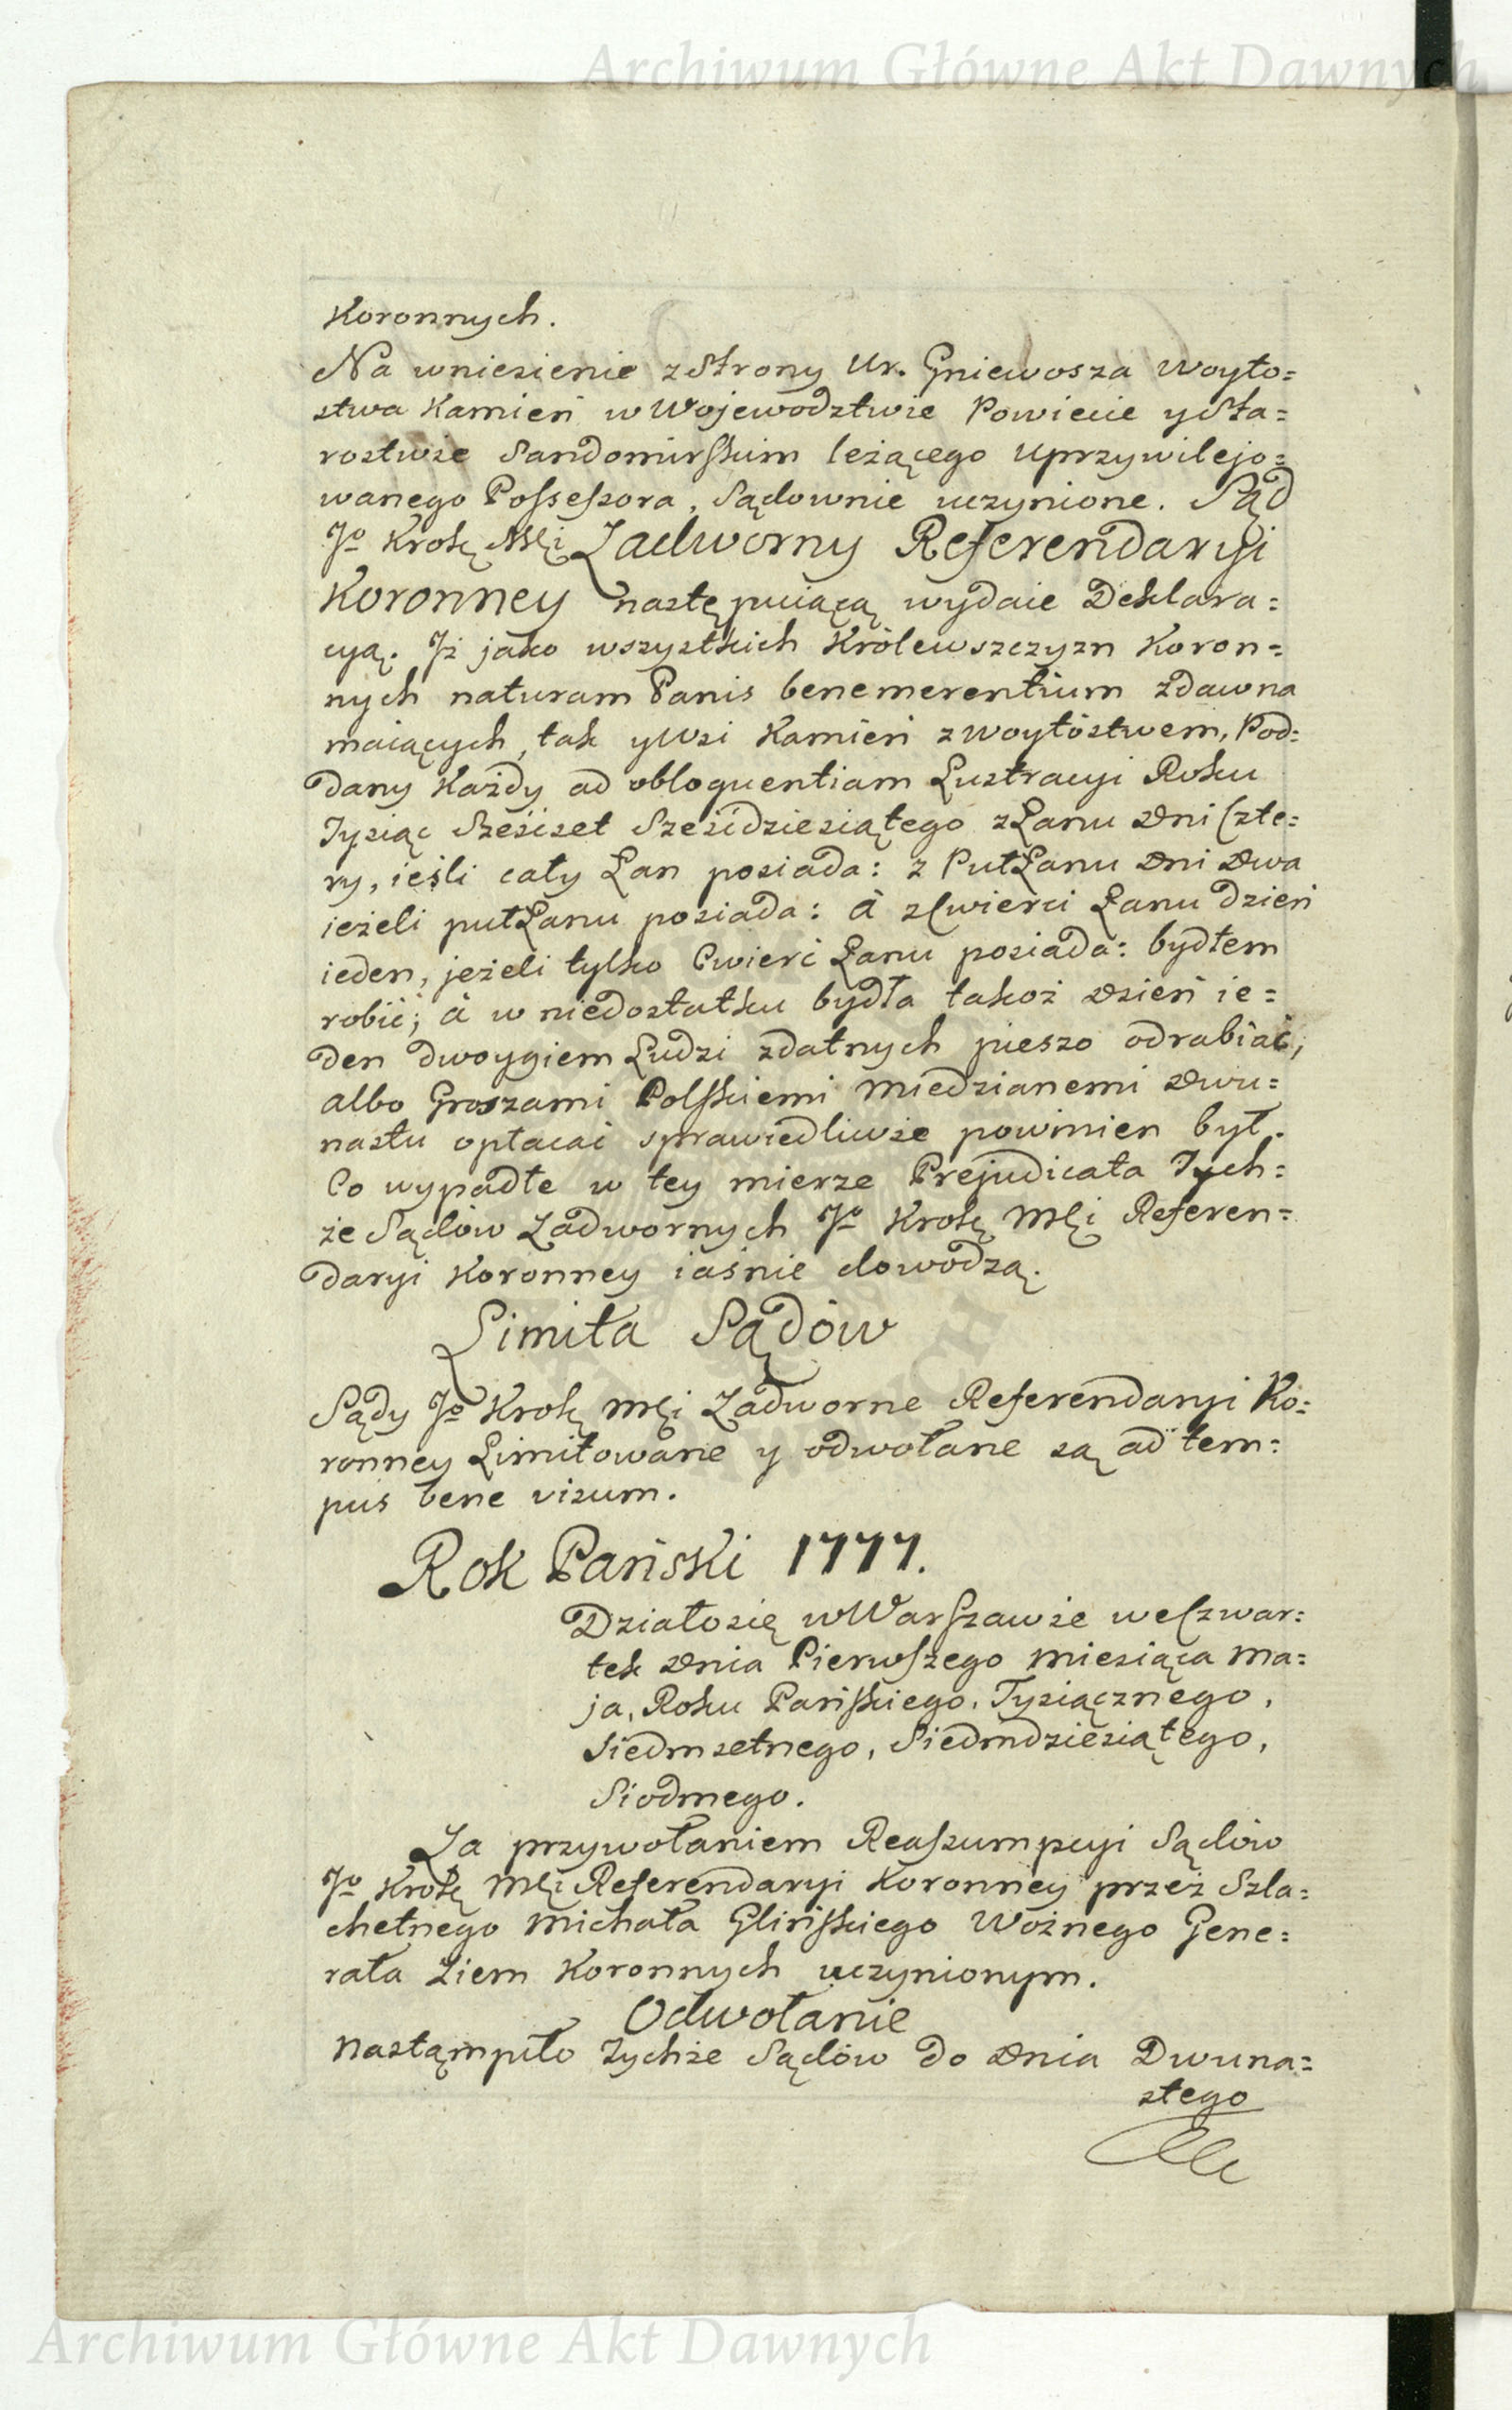 Archiwum Główne Akt Dawnych
Koronnych.
Na wniesienie z Strony Ur. Gniewosza Woyto=
stwa Kamień w Wojewodztwie Powiecie y Sta=
rostwie Sandomirskim leżącego Uprzywilejo=
wanego Possessora, Sądownie uczynione. Sąd
Jo Krolę Mĺęi Zadworny Referendaryi
Koronney następuiącą wydaie Deklara=
cyą. Jż jako wszystkich Królewszczyzn Koron=
nych naturam Panis bene merentium zdawna
maiących, tak y Wsi Kamień z Woytóstwem, Pod=
dany Każdy ad obloquentiam Lustracyi Roku
Tysiąc Sześćset Sześćdziesiątego z Łanu Dni Czte=
ry, ieśli cały Łan posiada: z Puł Łanu Dni Dwa
ieżeli puł Łanu posiada: à z Cwierci Łanu Dzień
ieden, jeżeli tylko Cwierć Łanu posiada: bydłem
robić; à w niedostatku bydła takoż Dzień ie=
den dwoygiem Ludzi zdatnych pieszo odrabiać,
albo Groszami Polskiemi Miedzianemi Dwu=
nastu opłacać sprawiedliwie powinien był.
Co wypadłe w tey mierze Prejudicata Tych=
że Sądów Zadwornych Jo Krolę Mĺęi Referen=
daryi Koronney iaśnie dowodzą.
Limita Sądów
Sądy Jo Krolę Mĺęi Zadworne Referendaryi Ko=
ronney Limitowane y odwołane są ad tem=
pus bene visum.
Rok Pański 1777.
Działo się w Warszawie we Czwar=
tek Dnia Pierwszego Miesiąca Ma=
ja, Roku Pańskiego, Tysiącznego,
Siedmsetnego, Siedmdziesiątego,
Siodmego.
Za przywołaniem Reassumpcyi Sądów
Jo Krolę Mĺęi Referendaryi Koronney przez Szla=
chetnego Michała Glińskiego Woźnego Gene=
rała Ziem Koronnych uczynionym.
Odwołanie
Nastąmpiło Tychże Sądów do Dnia Dwuna=
stego
Archiwum Główne Akt Dawnych